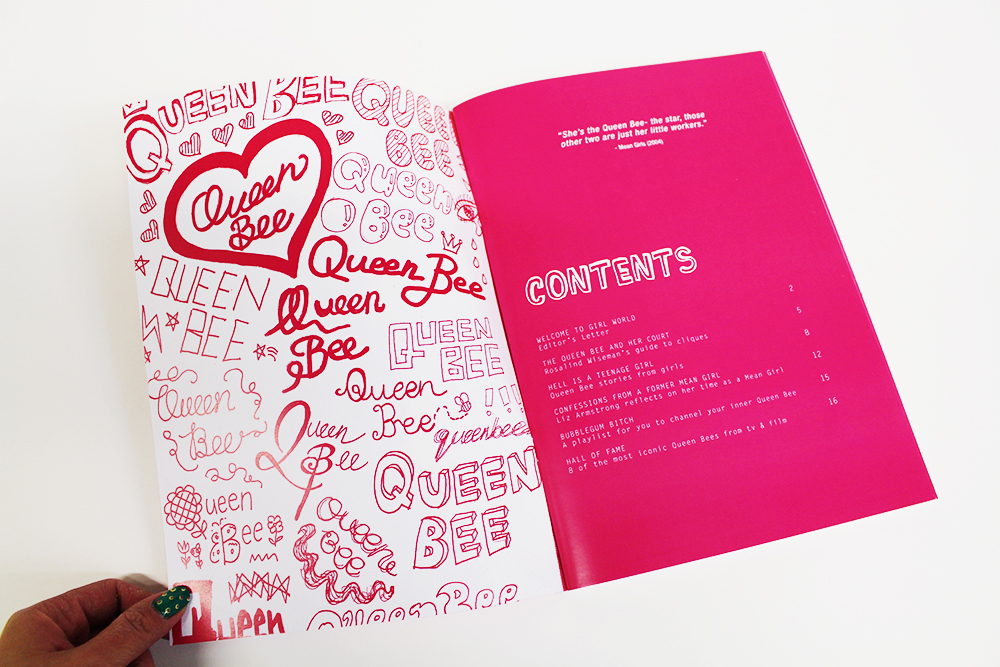 QUEEN BEE QUEEN
BEE
Queen
Bee
Queen
Bee
Queen Bee
QUEEN
BEE
Queen
Bee
QUEEN
BEE
Queen
Bee
Queen
Bee
Queen
Bee
queenbee
QUEEN
BEE
Queen
Bee
Queen
Bee
Queen
Queen Bee
"She's the Queen Bee- the star, those
other two are just her little workers."
- Mean Girls (2004)
CONTENTS
WELCOME TO GIRL WORLD 2
Editor's Letter
THE QUEEN BEE AND HER COURT 5
Rosalind Wiseman's guide to cliques
HELL IS A TEENAGE GIRL 8
Queen Bee stories from girls
CONFESSIONS FROM A FORMER MEAN GIRL 12
Liz Armstrong reflects on her time as a Mean Girl
BUBBLEGUM BITCH 15
A playlist for you to channel your inner Queen Bee
HALL OF FAME 16
8 of the most iconic Queen Bees from tv & film